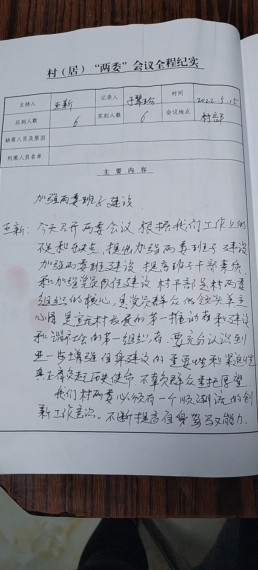 村（居）“两委”会议全程纪实
主持人 王新 记录人 时间 2022.9.15
应到人数 6 实到人数 6 会议地点 村部
缺席人员及原因
列席人员名单
主要内容
加强两委班子建设
王新：今天召开两委会议 根据我们工作上的
不足和缺点，提出加强两委班子建设
加强两委班子建设 提高班子干部素质
和加强党员队伍建设 村干部是村两委
组织的核心，是党员群众的领头羊主
心骨 是实现村发展的第一推动者和建设
和谐社会的第一组织者，要充分认识到
进一步增强自身建设的重要性和紧迫性
真正肩负起历史使命 不辜负群众支持展望
我们村两委必须有一个顺潮流的创
新工作意识。不断提高自身驾驭能力.